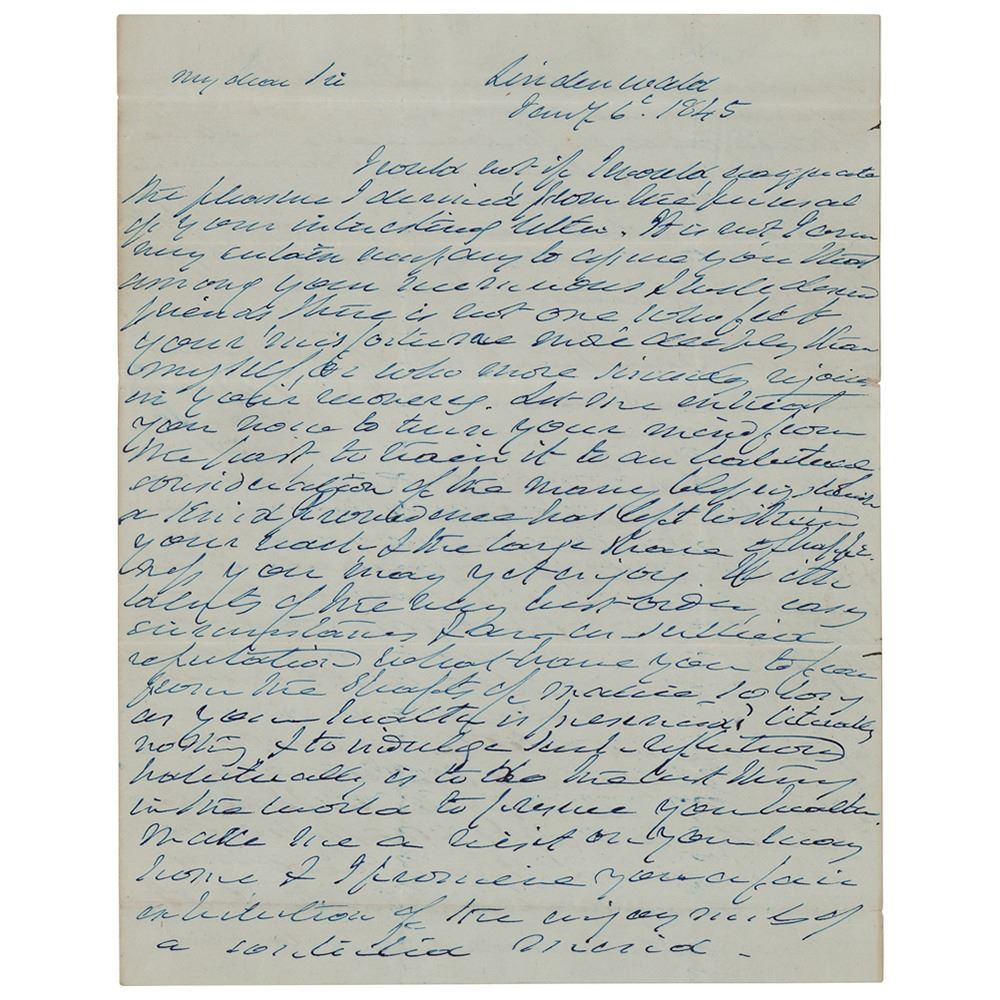 My dear Sir Lindenwald
Jany 6t. 1845
I could not if I would, exaggerate
the pleasure I derived from the perusal
of your interesting letter. It is not I
my to assure you that
among your numerous & well deserved
friends there is not one who felt
your misfortune more deeply than
myself, or who more sincerely rejoices
in your recovery. Let me entreat
you now to turn your mind from
the past to train it to an habitual
consideration of the many blessings which
a kind providence has left within
your reach & the large share of happi-
ness you may yet enjoy. With
talents of the very best order, easy
circumstances & a reputation
reputation what have you to fear
from the shafts of malice so long
as your health is preserved? literally
nothing & to indulge such reflections
habitually is to do the best thing
in the world to preserve your health.
Make me a visit on your way
home & I promise you a fair
exhibition of the enjoyments of
a contented mind.